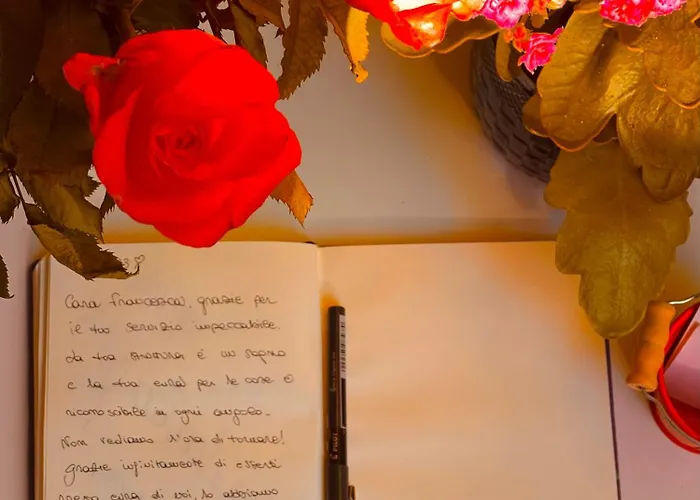 Cara Francesca, grazie per
il tuo servizio impeccabile.
La tua è un sogno
e la tua cura per le cose è
riconoscibile in ogni angolo.
Non vediamo l'ora di tornare!
Grazie infinitamente di esserti
presa cura di noi, lo abbiamo
PILOT